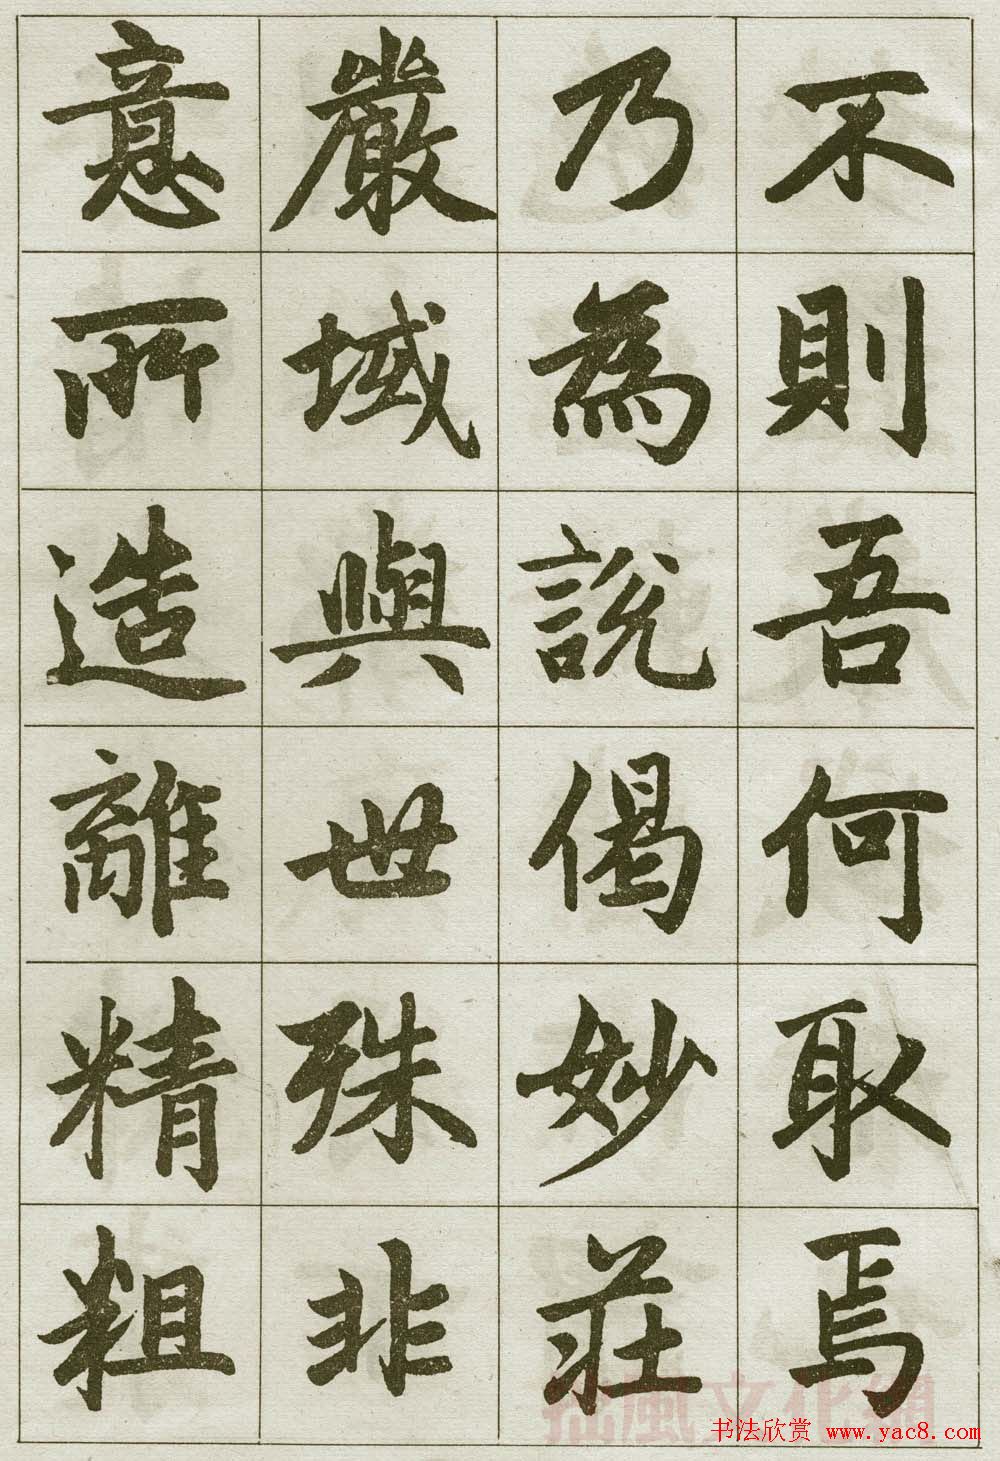 不則吾何取焉
乃為說偈妙莊
嚴域與世殊非
意所造離精粗
书法欣赏 www.yac8.com